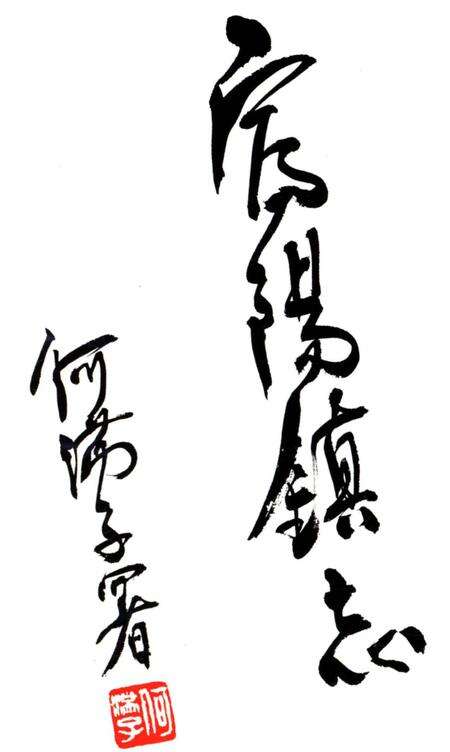 富陽鎮志
何滿子署
何滿子